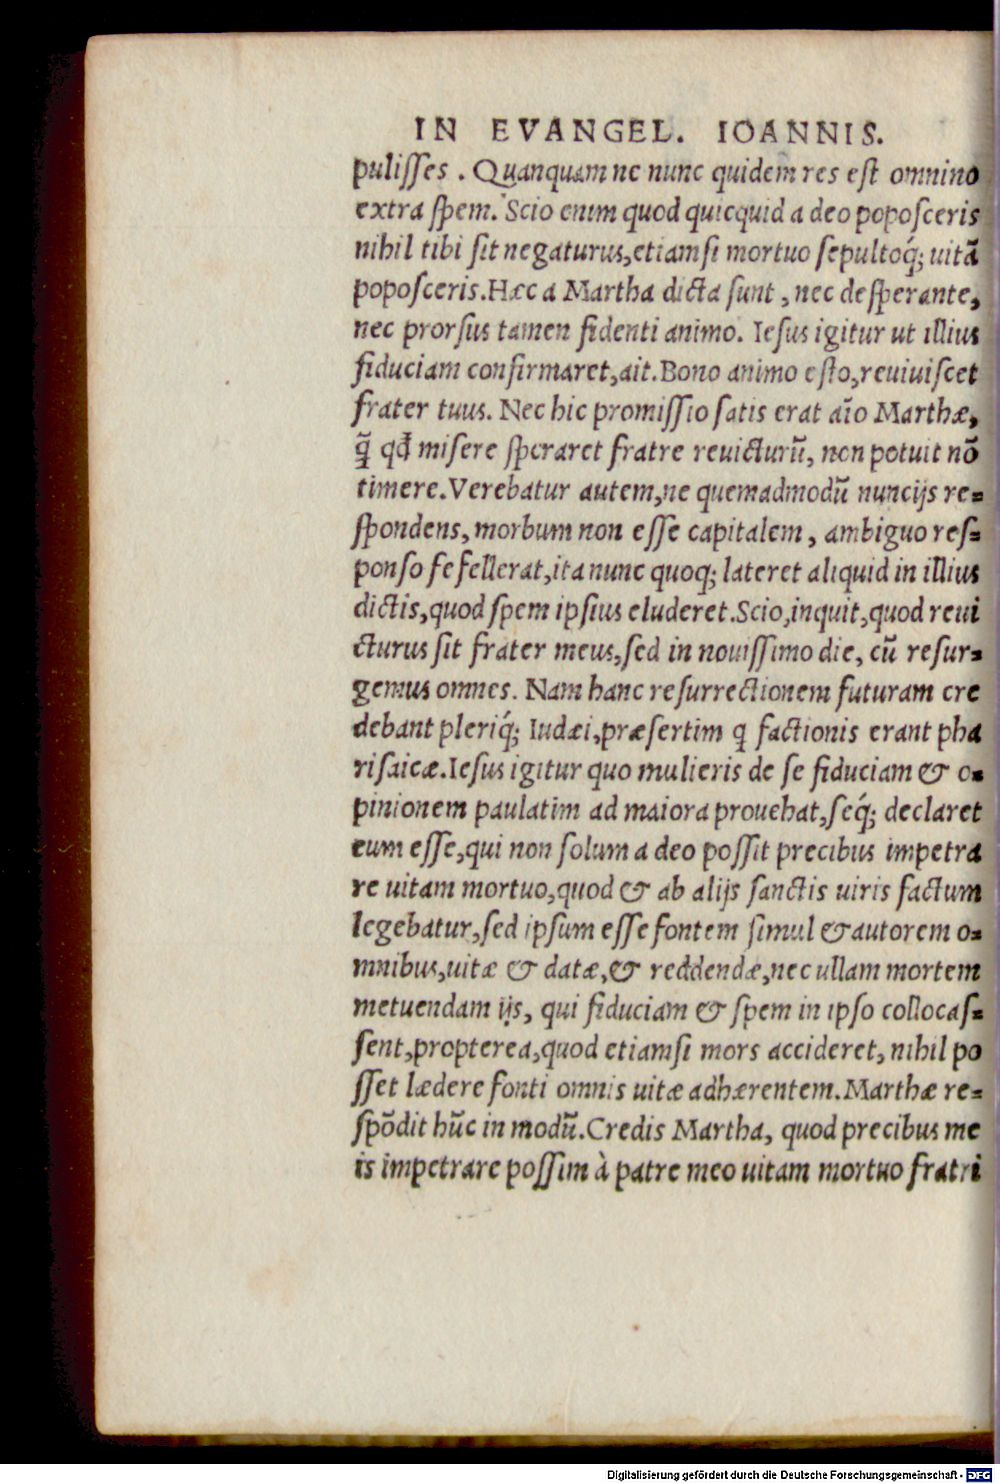 IN EVANGEL. IOANNIS.
pulisses. Quanquam ne nunc quidem res est omnino
extra spem. Scio enim quod quicquid a deo poposceris
nihil tibi sit negaturus, etiamsi mortuo sepultoq́; uitã
poposceris. Hæc a Martha dicta sunt, nec desperante,
nec prorsus tamen fidenti animo. Iesus igitur ut illius
fiduciam confirmaret, ait. Bono animo esto, reuiuiscet
frater tuus. Nec hic promissio satis erat aĩo Marthæ,
q̃ qđ misere speraret fratre reuicturũ, non potuit nõ
timere. Verebatur autem, ne quemadmodũ nuncijs re=
spondens, morbum non esse capitalem, ambiguo res=
ponso fefellerat, ita nunc quoq; lateret aliquid in illius
dictis, quod spem ipsius eluderet. Scio, inquit, quod reui
cturus sit frater meus, sed in nouissimo die, cũ resur=
gemus omnes. Nam hanc resurrectionem futuram cre
debant pleriq́; Iudæi, præsertim q factionis erant pha
risaicæ. Iesus igitur quo mulieris de se fiduciam & o=
pinionem paulatim ad maiora prouehat, seq́; declaret
eum esse, qui non solum a deo possit precibus impetra
re uitam mortuo, quod & ab alijs sanctis uiris factum
legebatur, sed ipsum esse fontem simul & autorem o=
mnibus, uitæ & datæ, & reddendæ, nec ullam mortem
metuendam ijs, qui fiduciam & spem in ipso collocas=
sent, propterea, quod etiamsi mors accideret, nihil po
sset lædere fonti omnis uitæ adhærentem. Marthæ re=
spõdit hũc in modũ. Credis Martha, quod precibus me
is impetrare possim à patre meo uitam mortuo fratri
Digitalisierung gefördert durch die Deutsche Forschungsgemeinschaft - DFG